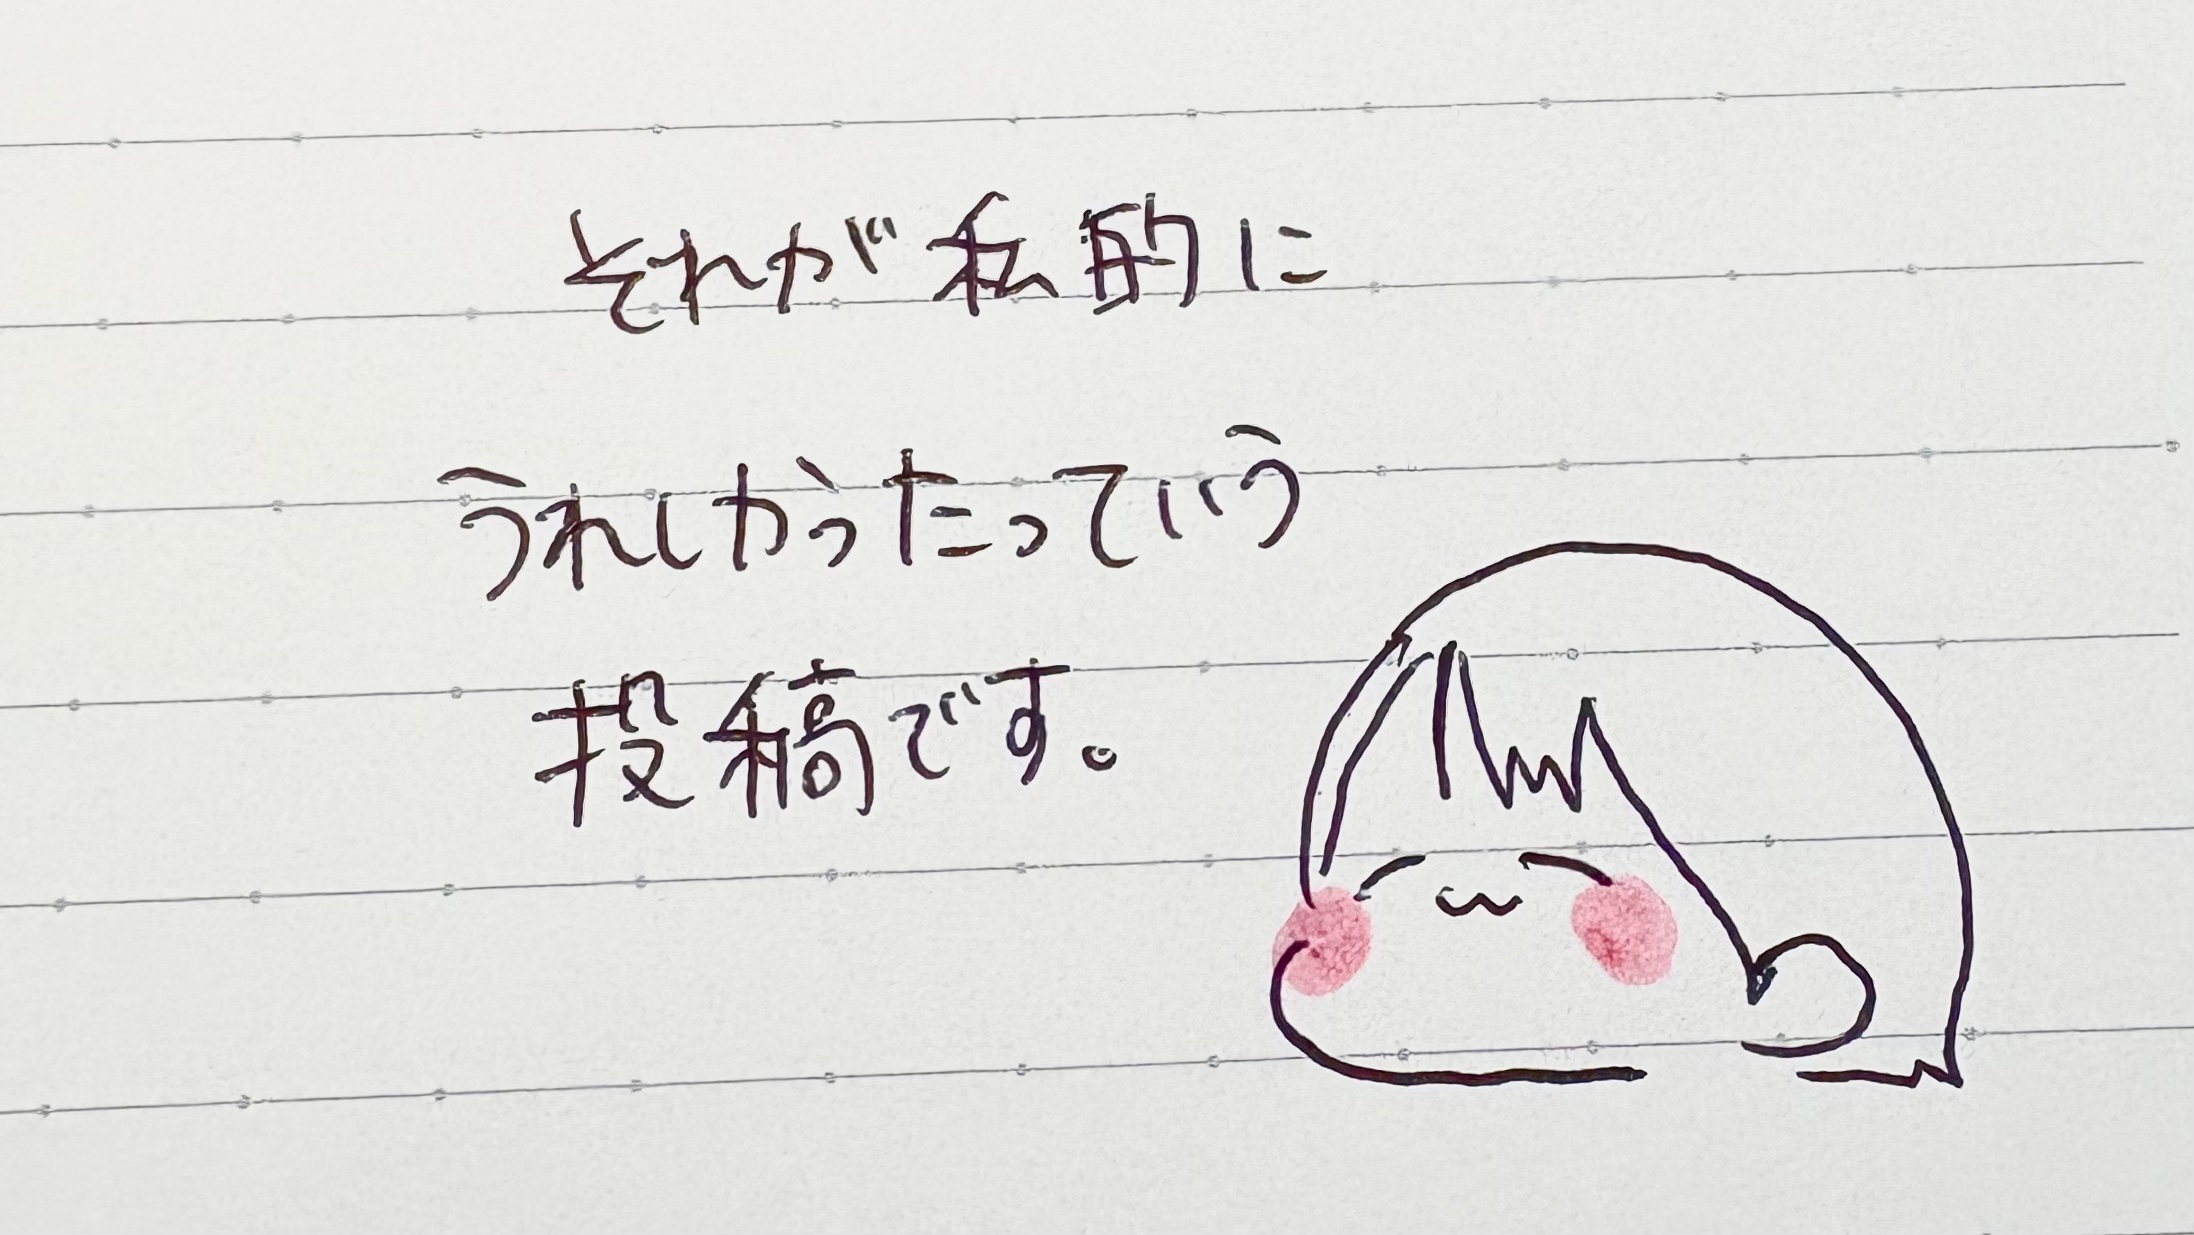 それが私的に
うれしかったっていう
投稿です。